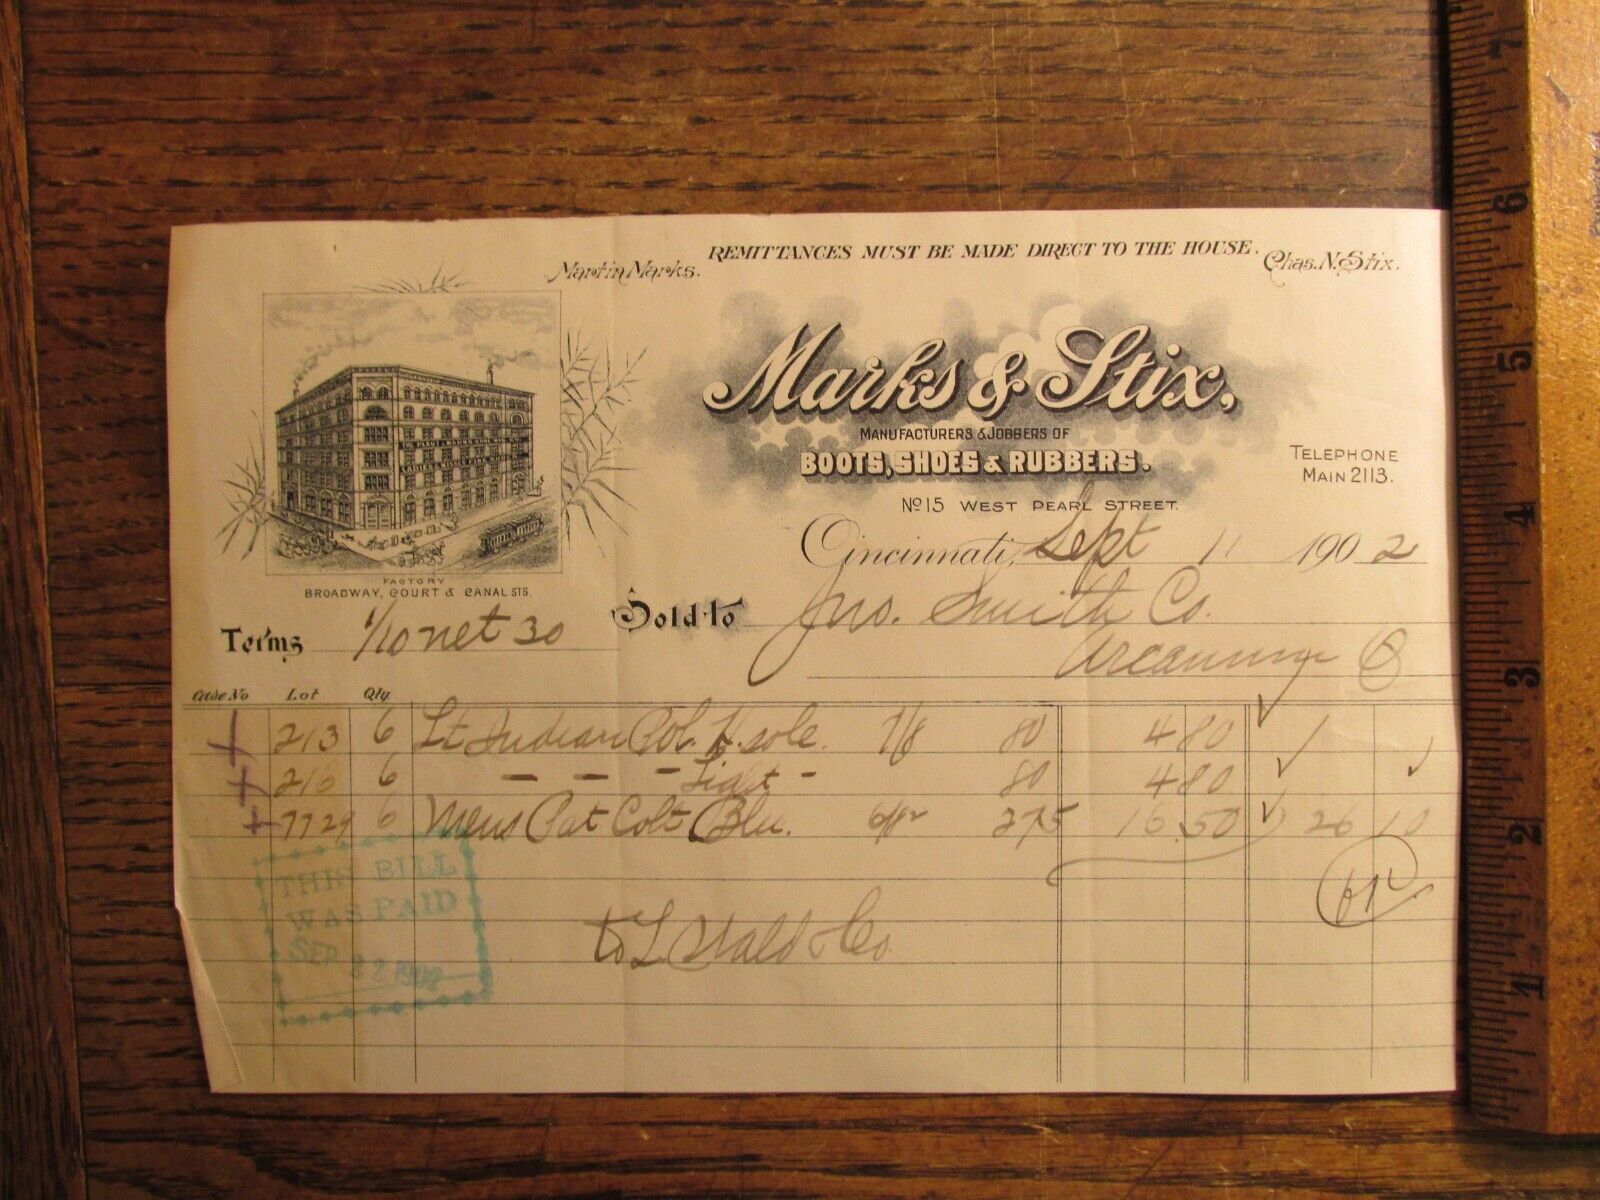 REMITTANCES MUST BE MADE DIRECT TO THE HOUSE.
Martin Marks.
Chas. N. Stix.
Marks & Stix,
MANUFACTURERS & JOBBERS OF
BOOTS, SHOES & RUBBERS.
TELEPHONE
MAIN 2113.
No 15 WEST PEARL STREET.
Cincinnati, Sept 11 1902
FACTORY
BROADWAY, COURT & CANAL STS.
Sold to Jno. Smith Co.
Terms 1/10 net 30
Arcanum O
Case No Lot Qty
213 6 Lt Indian Pol. H. sole. 7/8 80 4 80
216 6 — — — Light — 80 4 80
7729 6 Mens Pat Colt Blu. 275 16.50 26 10
THIS BILL
WAS PAID
SEP 22 1902
to L Stald & Co
7
6
5
4
3
2
1